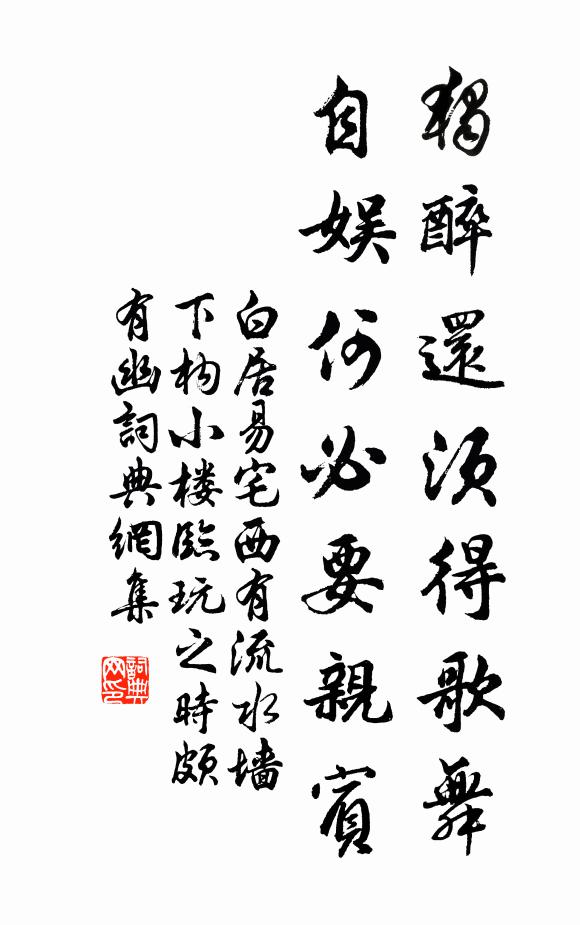 獨醉還須得歌舞
自娛何必要親賓
白居易宅西有流水墙
下构小楼臨玩之時頗
有幽詞典網集
詞典网印